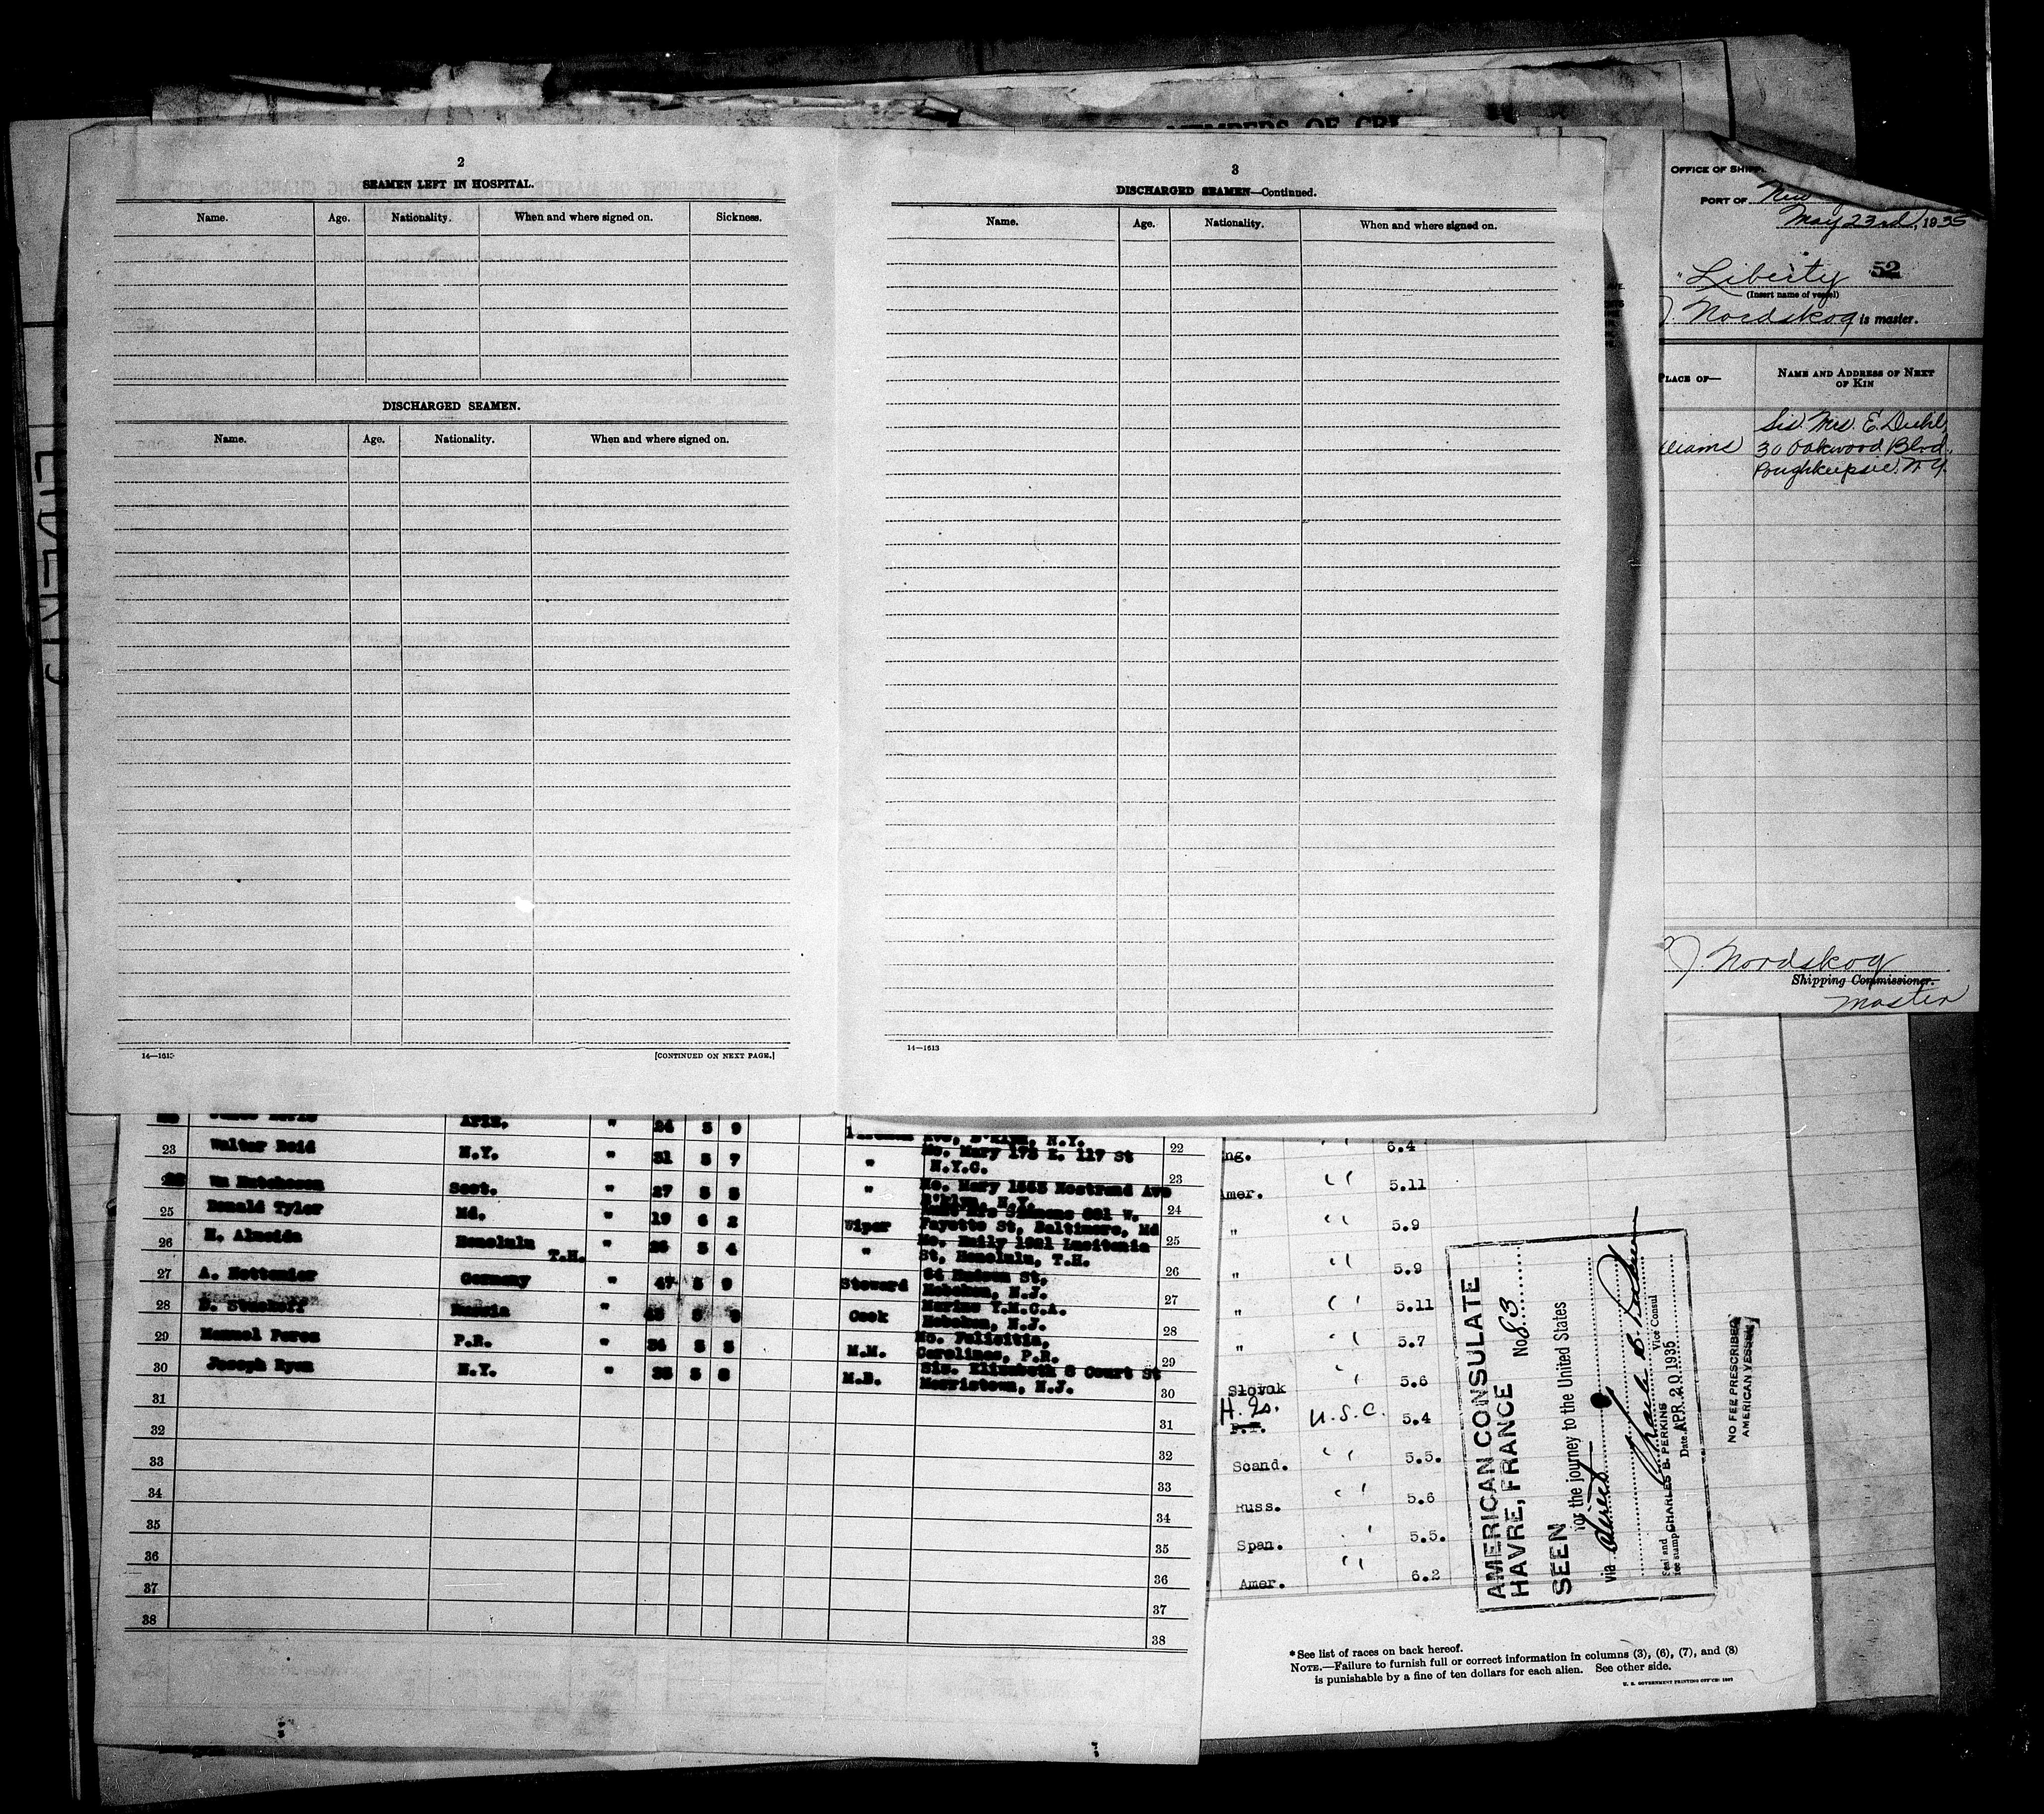 MEMBERS OF CRE
2
SEAMEN LEFT IN HOSPITAL.
Name. Age. Nationality. When and where signed on. Sickness.
DISCHARGED SEAMEN.
Name. Age. Nationality. When and where signed on.
14—1613
[CONTINUED ON NEXT PAGE.]
3
DISCHARGED SEAMEN—Continued.
Name. Age. Nationality. When and where signed on.
14—1613
OFFICE OF SHIPPI
PORT OF New
May 23rd, 1935
"Liberty 52
(Insert name of vessel)
J. Nordskog is master.
PLACE OF—
NAME AND ADDRESS OF NEXT
OF KIN
Sis. Mrs. E. Diehl,
lliams 30 Oakwood Blvd.
Poughkeepsie, N.Y.
J Nordskog
Shipping Commissioner.
Master
Ariz. " 24 5 9
Ave, B'klyn, N.Y. 22
23 Walter Reid N.Y. " 31 5 7 " Mo. Mary 173 E. 117 St
N.Y.C. 23
Wm Hutcheson Scot. " 27 5 5 " Mo. Mary 1555 Nostrand Ave
B'klyn, N.Y. 24
25 Donald Tyler Md. " 19 6 2 Wiper Simmons 601 W.
Fayette St, Baltimore, Md 25
26 H. Almeida Honolulu T.H. " 26 5 4 " Mo. Emily 1021 Lusitania
St, Honolulu, T.H. 26
27 A. Nottemier Germany " 47 5 9 Steward 64 Hudson St,
Hoboken, N.J. 27
28 Russia " Cook Marine Y.M.C.A.
Hoboken, N.J. 28
29 Manuel Perez P.R. " 34 5 5 M.M. Mo. Felicitia,
Carolinas, P.R. 29
30 Joseph Ryan N.Y. " 35 5 8 M.B. Sis. Elizabeth 8 Court St
Morristown, N.J. 30
31 31
32 32
33 33
34 34
35 35
36 36
37 37
38 38
ng. " 6.4
Amer. " 5.11
" " 5.9
" " 5.9
" " 5.11
" " 5.7
Slovak " 5.6
P.I. U.S.C. 5.4
Scand. " 5.5.
Russ. " 5.6
Span. " 5.5.
Amer. " 6.2
AMERICAN CONSULATE
HAVRE, FRANCE No 83
SEEN
for the journey to the United States
via direct
Vice Consul
CHARLES B. PERKINS
Seal and
fee stamp Date APR. 20 1935
NO FEE PRESCRIBED
AMERICAN VESSEL
*See list of races on back hereof.
NOTE.—Failure to furnish full or correct information in columns (3), (6), (7), and (8)
is punishable by a fine of ten dollars for each alien. See other side.
U. S. GOVERNMENT PRINTING OFFICE: